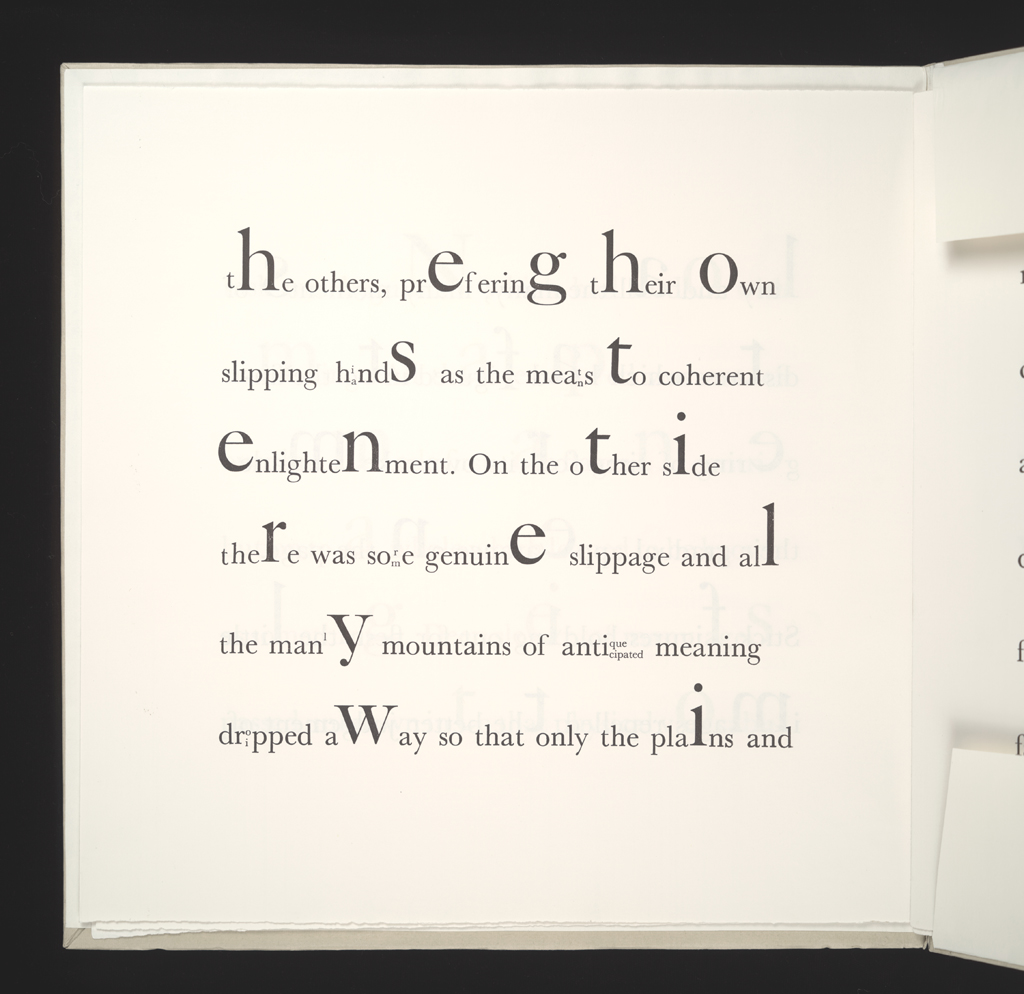 the others, prefering their own
slipping hiands as the meatns to coherent
enlightenment. On the other side
there was sorme genuine slippage and all
the manly mountains of antiquecipated meaning
droipped away so that only the plains and